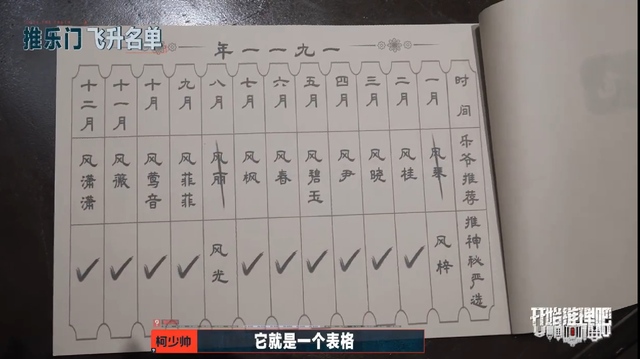 推乐门 飞升名单
一九一一年
时间 一月 二月 三月 四月 五月 六月 七月 八月 九月 十月 十一月 十二月
乐爷推荐 风 风桂 风晓 风尹 风碧玉 风春 风枫 风丽 风菲菲 风莺音 风薇 风潇潇
推神秘严选 风梓 ✓ ✓ ✓ ✓ ✓ ✓ 风光 ✓ ✓ ✓ ✓
开始推理吧
柯少帅 它就是一个表格